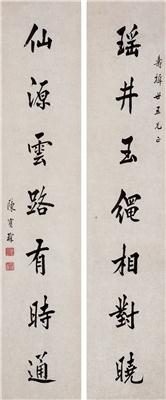 壽樟世五兄正
瑤井玉繩相對曉
仙源雲路有時通
陳寶琛